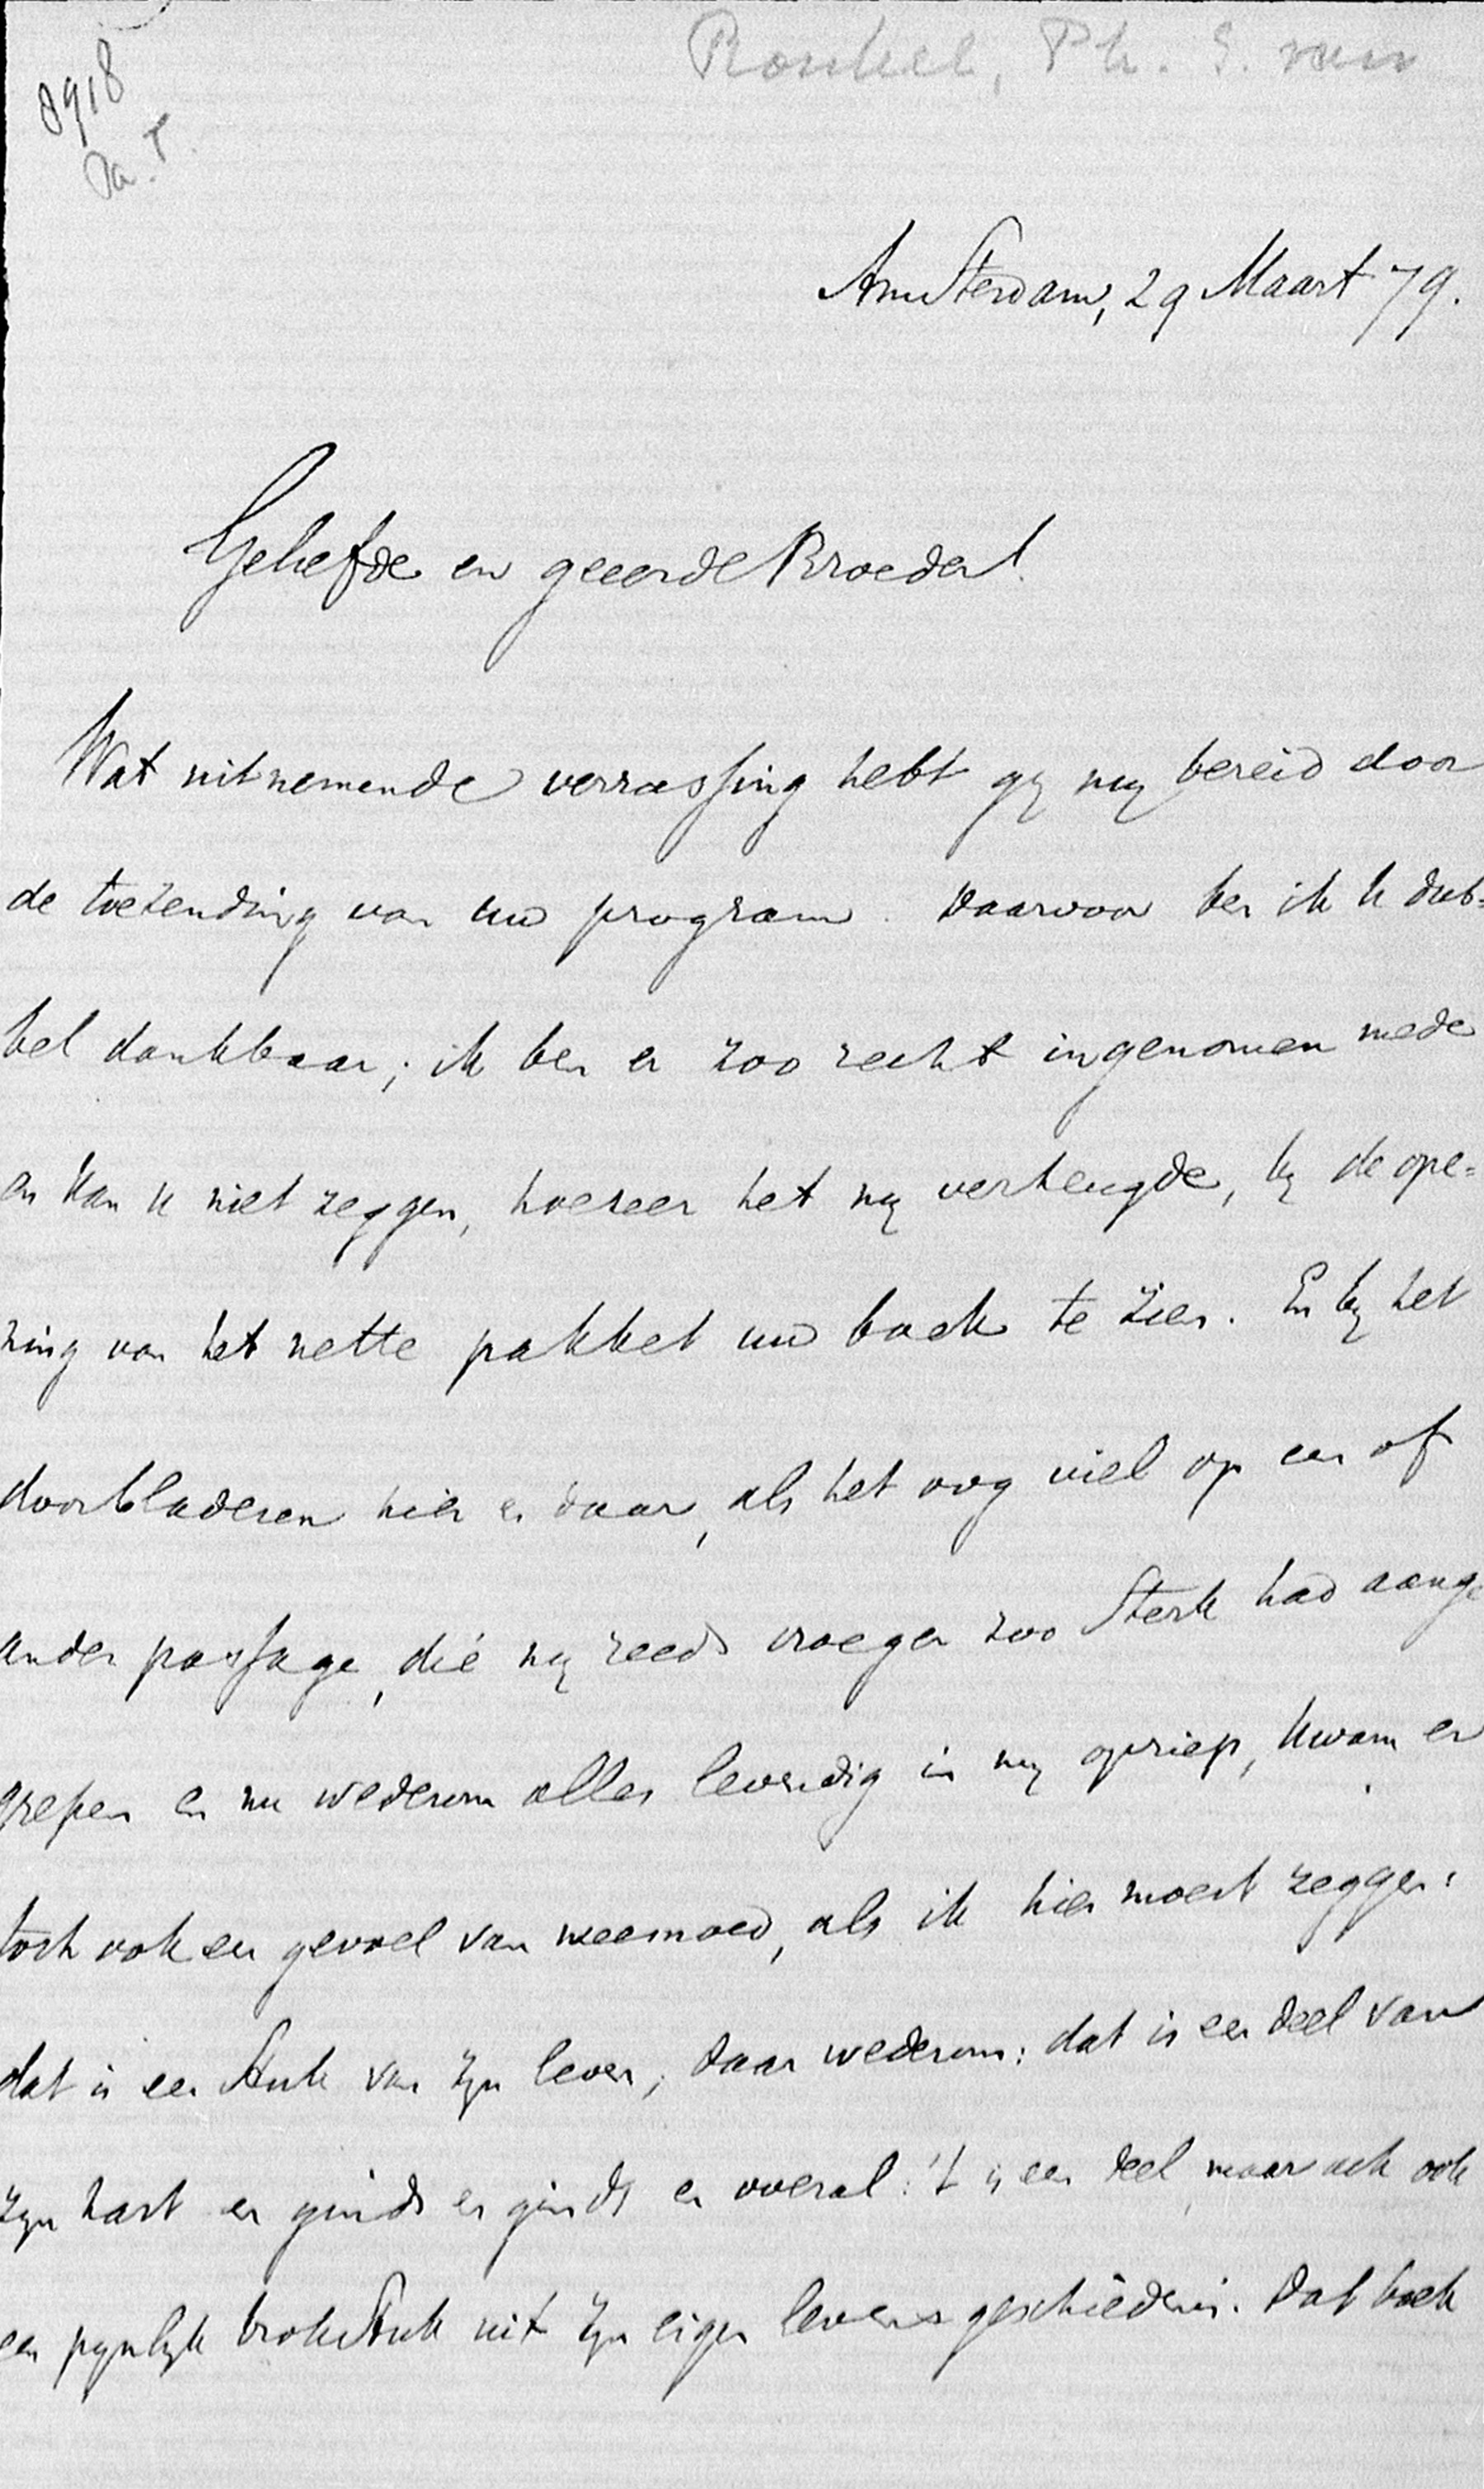 Ronkel, Ph. S. van
8918
Amsterdam, 29 Maart 79.
Geliefde en geeerde Broeder!
Wat uitnemende verrassing hebt gij mij bereid door
de toezending van uw program. Daarvoor ben ik U dub=
bel dankbaar; ik ben er zoo recht ingenomen mede
en kan U niet zeggen, hoezeer het mij verheugde, bij de ope=
ning van het nette pakket uw boek te zien. En bij het
doorbladeren hier en daar, als het oog viel op een of
ander passage, die mij reeds vroeger zoo sterk had aange
grepen en nu wederom alles levendig in mij opriep, kwam er
toch ook een gevoel van weemoed, als ik hier moest zeggen:
dat is een stuk van zijn leven, daar wederom: dat is een deel van
zijn hart en ginds en ginds en overal: 't is een deel, maar ach ook
een pijnlijk brokstuk uit zijn eigen levensgeschiedenis. Dat boek